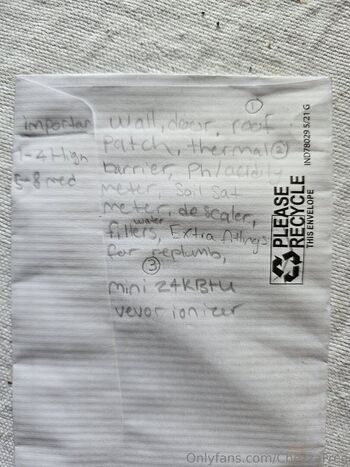 ①
importan
1-4 High
5-8 med
wall, door, roof
patch, thermal ②
barrier, Ph/acidity
meter, Soil sat
meter, descaler,
water
fillers, Extra fittings
for replumb,
③
mini 24KBtu
vevor ionizer
IND78029 S/21 G
PLEASE
RECYCLE
THIS ENVELOPE
Onlyfans.com/